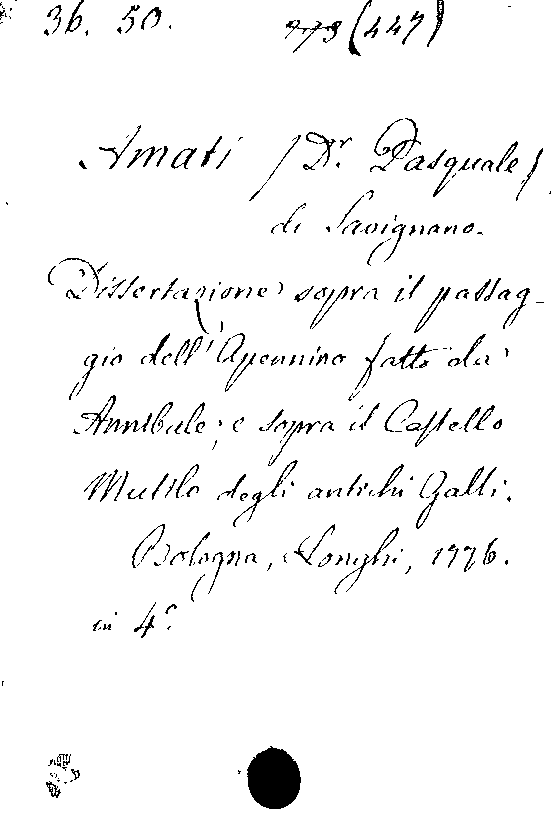 36. 50. 773 (447)
Amati (Dr. Pasquale)
di Savignano.
Dissertazione sopra il passag-
gio dell'Apennino fatto da
Annibale; e sopra il Castello
Mutilo degli antichi Galli.
Bologna, Longhi, 1776.
in 4°.